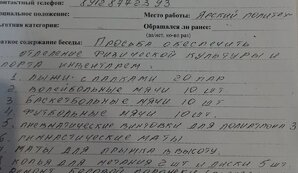 контактный телефон: 89128472393
социальное положение: Место работы: Ярский политех
льготная категория: Обращался ли ранее:
(да/нет, кол-во раз)
краткое содержание беседы: Просьба обеспечить
отделение физической культуры и
спорта инвентарем.
1. Лыжи с палками 20 пар
2. Волейбольные мячи 10 шт
3. Баскетбольные мячи 10 шт
4. Футбольные мячи 10 шт.
5. Пневматические винтовки для полиатлона 3
6. Гимнастические маты.
7. Маты для прыжка в высоту.
Копья для метания 2 шт и диски 5 шт.
Ремонт беговой дорожки